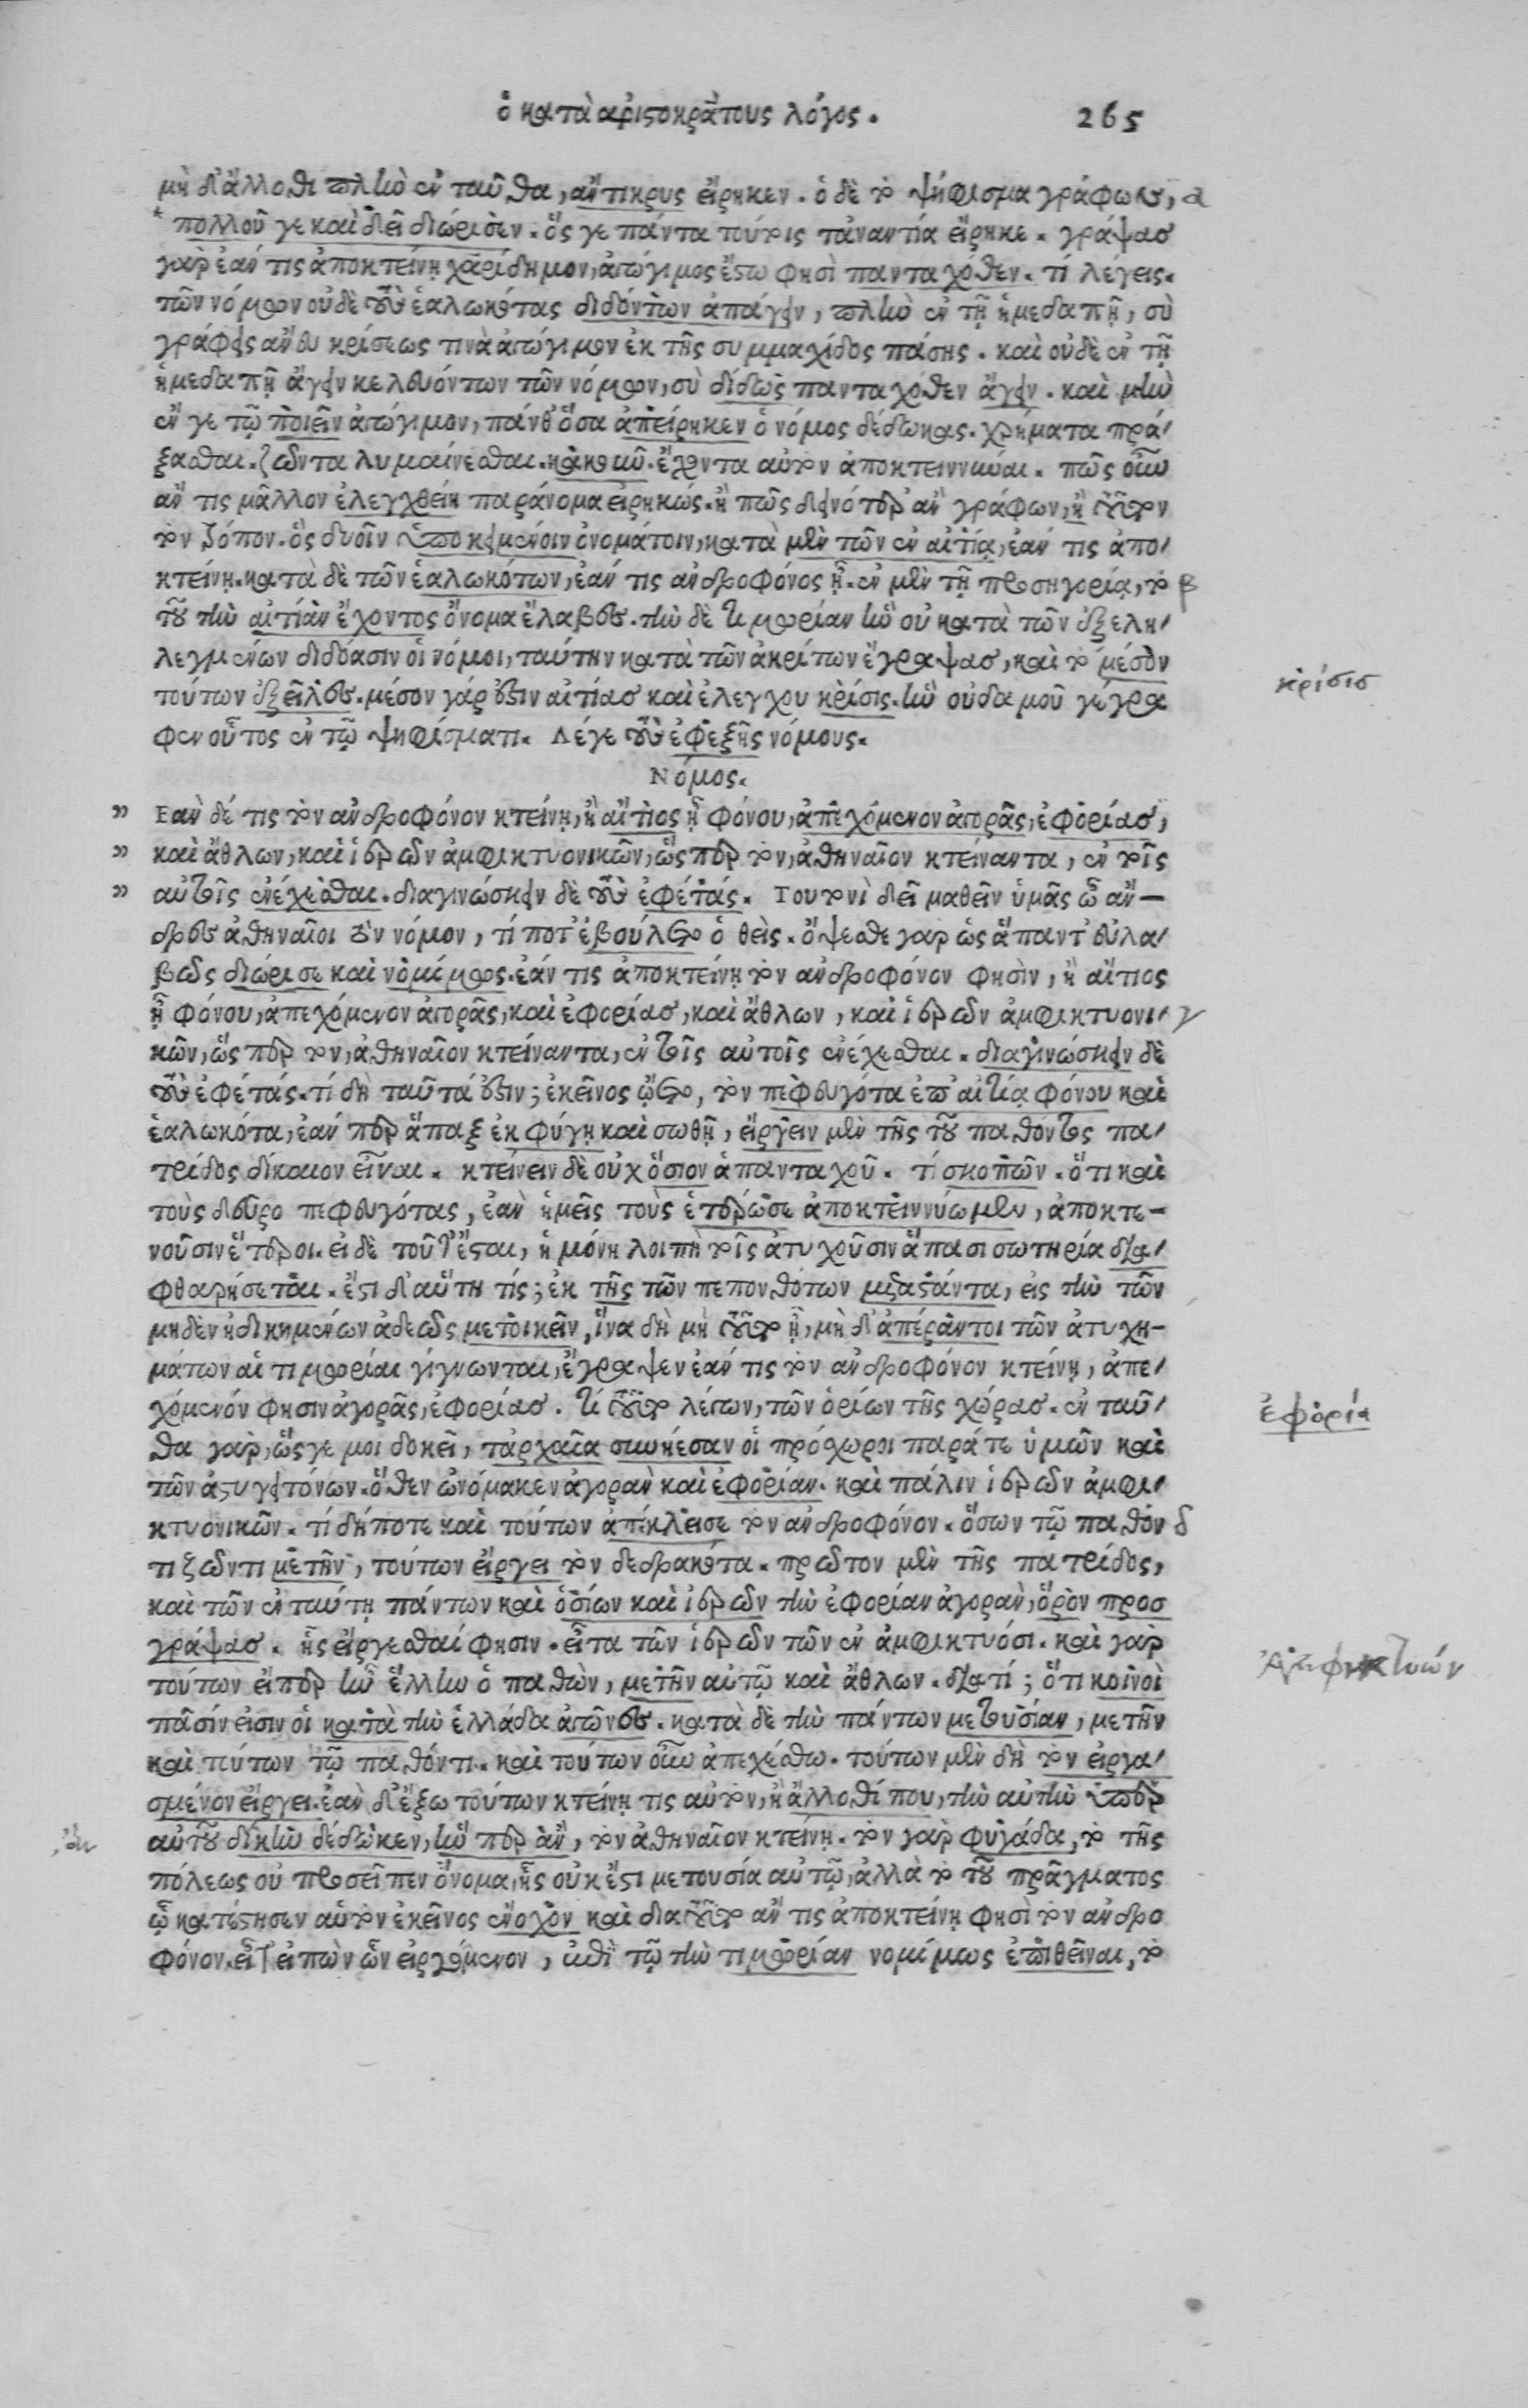 ὁ κατὰ ἀριστοκράτους λόγος. 265
μὴ δ᾽ ἄλλοθι πλὴν ἐνταῦθα, ἄντικρυς εἴρηκεν. ὁ δὲ τὸ ψήφισμα γράφων, α
* πολλοῦ γε καὶ δεῖ διώρισεν. ὅς γε πάντα τούτοις τἀναντία εἴρηκε. γράψας
γὰρ ἐάν τις ἀποκτείνῃ χαρίδημον, ἀγώγιμος ἔστω φησὶ πανταχόθεν. τί λέγεις.
τῶν νόμων οὐδὲ τοὺς ἑαλωκότας διδόντων ἀπάγειν, πλὴν ἐν τῇ ἡμεδαπῇ, σὺ
γράφεις ἄνευ κρίσεως τινὰ ἀγώγιμον ἐκ τῆς συμμαχίδος πάσης. καὶ οὐδὲ ἐν τῇ
ἡμεδαπῇ ἄγειν κελευόντων τῶν νόμων, σὺ δίδως πανταχόθεν ἄγειν. καὶ μὴν
ἔν γε τῷ ποιεῖν ἀγώγιμον, πάνθ᾽ ὅσα ἀπείρηκεν ὁ νόμος δέδωκας. χρήματα πρά-
ξασθαι. ζῶντα λυμαίνεσθαι. κακοῦν. ἔχοντα αὐτὸν ἀποκτειννύναι. πῶς οὖν
ἄν τις μᾶλλον ἐλεγχθείη παράνομα εἰρηκώς. ἢ πῶς δεινότερ᾽ ἂν γράφων, ἢ τοῦτον
τὸν τρόπον. ὃς δυοῖν ὑποκειμένοιν ὀνομάτοιν, κατὰ μὲν τῶν ἐν αἰτίᾳ, ἐάν τις ἀπο-
κτείνῃ. κατὰ δὲ τῶν ἑαλωκότων, ἐάν τις ἀνδροφόνος ᾖ. ἐν μὲν τῇ προσηγορίᾳ, τὸ β
τοῦ τὴν αἰτίαν ἔχοντος ὄνομα ἔλαβες. τὴν δὲ τιμωρίαν ἣν οὐ κατὰ τῶν ἐξελη-
λεγμένων διδόασιν οἱ νόμοι, ταύτην κατὰ τῶν ἀκρίτων ἔγραψας, καὶ τὸ μέσον
τούτων ἐξεῖλες. μέσον γάρ ἐστιν αἰτίας καὶ ἐλέγχου κρίσις. ἣν οὐδαμοῦ γέγρα
φεν οὗτος ἐν τῷ ψηφίσματι. Λέγε τοὺς ἐφεξῆς νόμους.
κρίσις
Νόμος.
" Ἐὰν δέ τις τὸν ἀνδροφόνον κτείνῃ, ἢ αἴτιος ᾖ φόνου, ἀπεχόμενον ἀγορᾶς, ἐφορίας,
" καὶ ἄθλων, καὶ ἱερῶν ἀμφικτυονικῶν, ὥσπερ τὸν, ἀθηναῖον κτείναντα, ἐν τοῖς
" αὐτοῖς ἐνέχεσθαι. διαγινώσκειν δὲ τοὺς ἐφέτας. Τουτονὶ δεῖ μαθεῖν ὑμᾶς ὦ ἄν-
δρες ἀθηναῖοι τὸν νόμον, τί ποτ᾽ ἐβούλετο ὁ θείς. ὄψεσθε γὰρ ὡς ἅπαντ᾽ εὐλα-
βῶς διώρισε καὶ νομίμως. ἐάν τις ἀποκτείνῃ τὸν ἀνδροφόνον φησὶν, ἢ αἴτιος
ᾖ φόνου, ἀπεχόμενον ἀγορᾶς, καὶ ἐφορίας, καὶ ἄθλων, καὶ ἱερῶν ἀμφικτυονι- γ
κῶν, ὥσπερ τὸν, ἀθηναῖον κτείναντα, ἐν τοῖς αὐτοῖς ἐνέχεσθαι. διαγινώσκειν δὲ
τοὺς ἐφέτας. τί δὴ ταῦτά ἐστιν; ἐκεῖνος ᾤετο, τὸν πεφευγότα ἐπ᾽ αἰτίᾳ φόνου καὶ
ἑαλωκότα, ἐάνπερ ἅπαξ ἐκφύγῃ καὶ σωθῇ, εἴργειν μὲν τῆς τοῦ παθόντος πα-
τρίδος δίκαιον εἶναι. κτείνειν δὲ οὐχ ὅσιον ἁπανταχοῦ. τί σκοπῶν. ὅτι καὶ
τοὺς δεῦρο πεφευγότας, ἐὰν ἡμεῖς τοὺς ἑτέρωσε ἀποκτειννύωμεν, ἀποκτε-
νοῦσιν ἕτεροι. εἰ δὲ τοῦτ᾽ ἔσται, ἡ μόνη λοιπὴ τοῖς ἀτυχοῦσιν ἅπασι σωτηρία δια-
φθαρήσεται. ἔστι δ᾽ αὕτη τίς; ἐκ τῆς τῶν πεπονθότων μεταστάντα, εἰς τὴν τῶν
μηδὲν ἠδικημένων ἀδεῶς μετοικεῖν, ἵνα δὴ μὴ τοῦτο ᾖ, μὴ δ᾽ ἀπέραντοι τῶν ἀτυχη-
μάτων αἱ τιμωρίαι γίγνωνται, ἔγραψεν ἐάν τις τὸν ἀνδροφόνον κτείνῃ, ἀπε-
χόμενόν φησιν ἀγορᾶς, ἐφορίας. τί τοῦτο λέγων, τῶν ὁρίων τῆς χώρας. ἐνταῦ-
ἐφορία
θα γὰρ, ὥς γε μοι δοκεῖ, τἀρχαῖα συνῄεσαν οἱ πρόσχωροι παρά τε ὑμῶν καὶ
τῶν ἀστυγειτόνων. ὅθεν ὠνόμακεν ἀγορὰν καὶ ἐφορίαν. καὶ πάλιν ἱερῶν ἀμφι-
κτυονικῶν. τί δήποτε καὶ τούτων ἀπέκλεισε τὸν ἀνδροφόνον. ὅσων τῷ παθόν δ
τι ζῶντι μετῆν, τούτων εἴργει τὸν δεδρακότα. πρῶτον μὲν τῆς πατρίδος,
καὶ τῶν ἐν ταύτῃ πάντων καὶ ὁσίων καὶ ἱερῶν τὴν ἐφορίαν ἀγορὰν, ὅρον προσ
γράψας. ἧς εἴργεσθαί φησιν. εἶτα τῶν ἱερῶν τῶν ἐν ἀμφικτυόσι. καὶ γὰρ
Ἀμφικτυών
τούτων εἴπερ ἦν ἕλλην ὁ παθὼν, μετῆν αὐτῷ καὶ ἄθλων. διατί; ὅτι κοινοὶ
πᾶσίν εἰσιν οἱ κατὰ τὴν ἑλλάδα ἀγῶνες. κατὰ δὲ τὴν πάντων μετουσίαν, μετῆν
καὶ τούτων τῷ παθόντι. καὶ τούτων οὖν ἀπεχέσθω. τούτων μὲν δὴ τὸν εἰργα-
σμένον εἴργει. ἐὰν δ᾽ ἔξω τούτων κτείνῃ τις αὐτὸν, ἢ ἄλλοθί που, τὴν αὐτὴν ὑπὲρ
αὐτοῦ δίκην δέδωκεν, ἥνπερ ἂν, τὸν ἀθηναῖον κτείνῃ. τὸν γὰρ φυγάδα, τὸ τῆς
πόλεως οὐ προσεῖπεν ὄνομα, ἧς οὐκ ἔστι μετουσία αὐτῷ, ἀλλὰ τὸ τοῦ πράγματος
ᾧ κατέστησεν αὑτὸν ἐκεῖνος ἔνοχον καὶ διατοῦτο ἄν τις ἀποκτείνῃ φησὶ τὸν ἀνδρο
φόνον. εἶτ᾽ εἰπὼν ὧν εἰργόμενον, ἐπὶ τῷ τὴν τιμωρίαν νομίμως ἐπιθεῖναι, τὸ